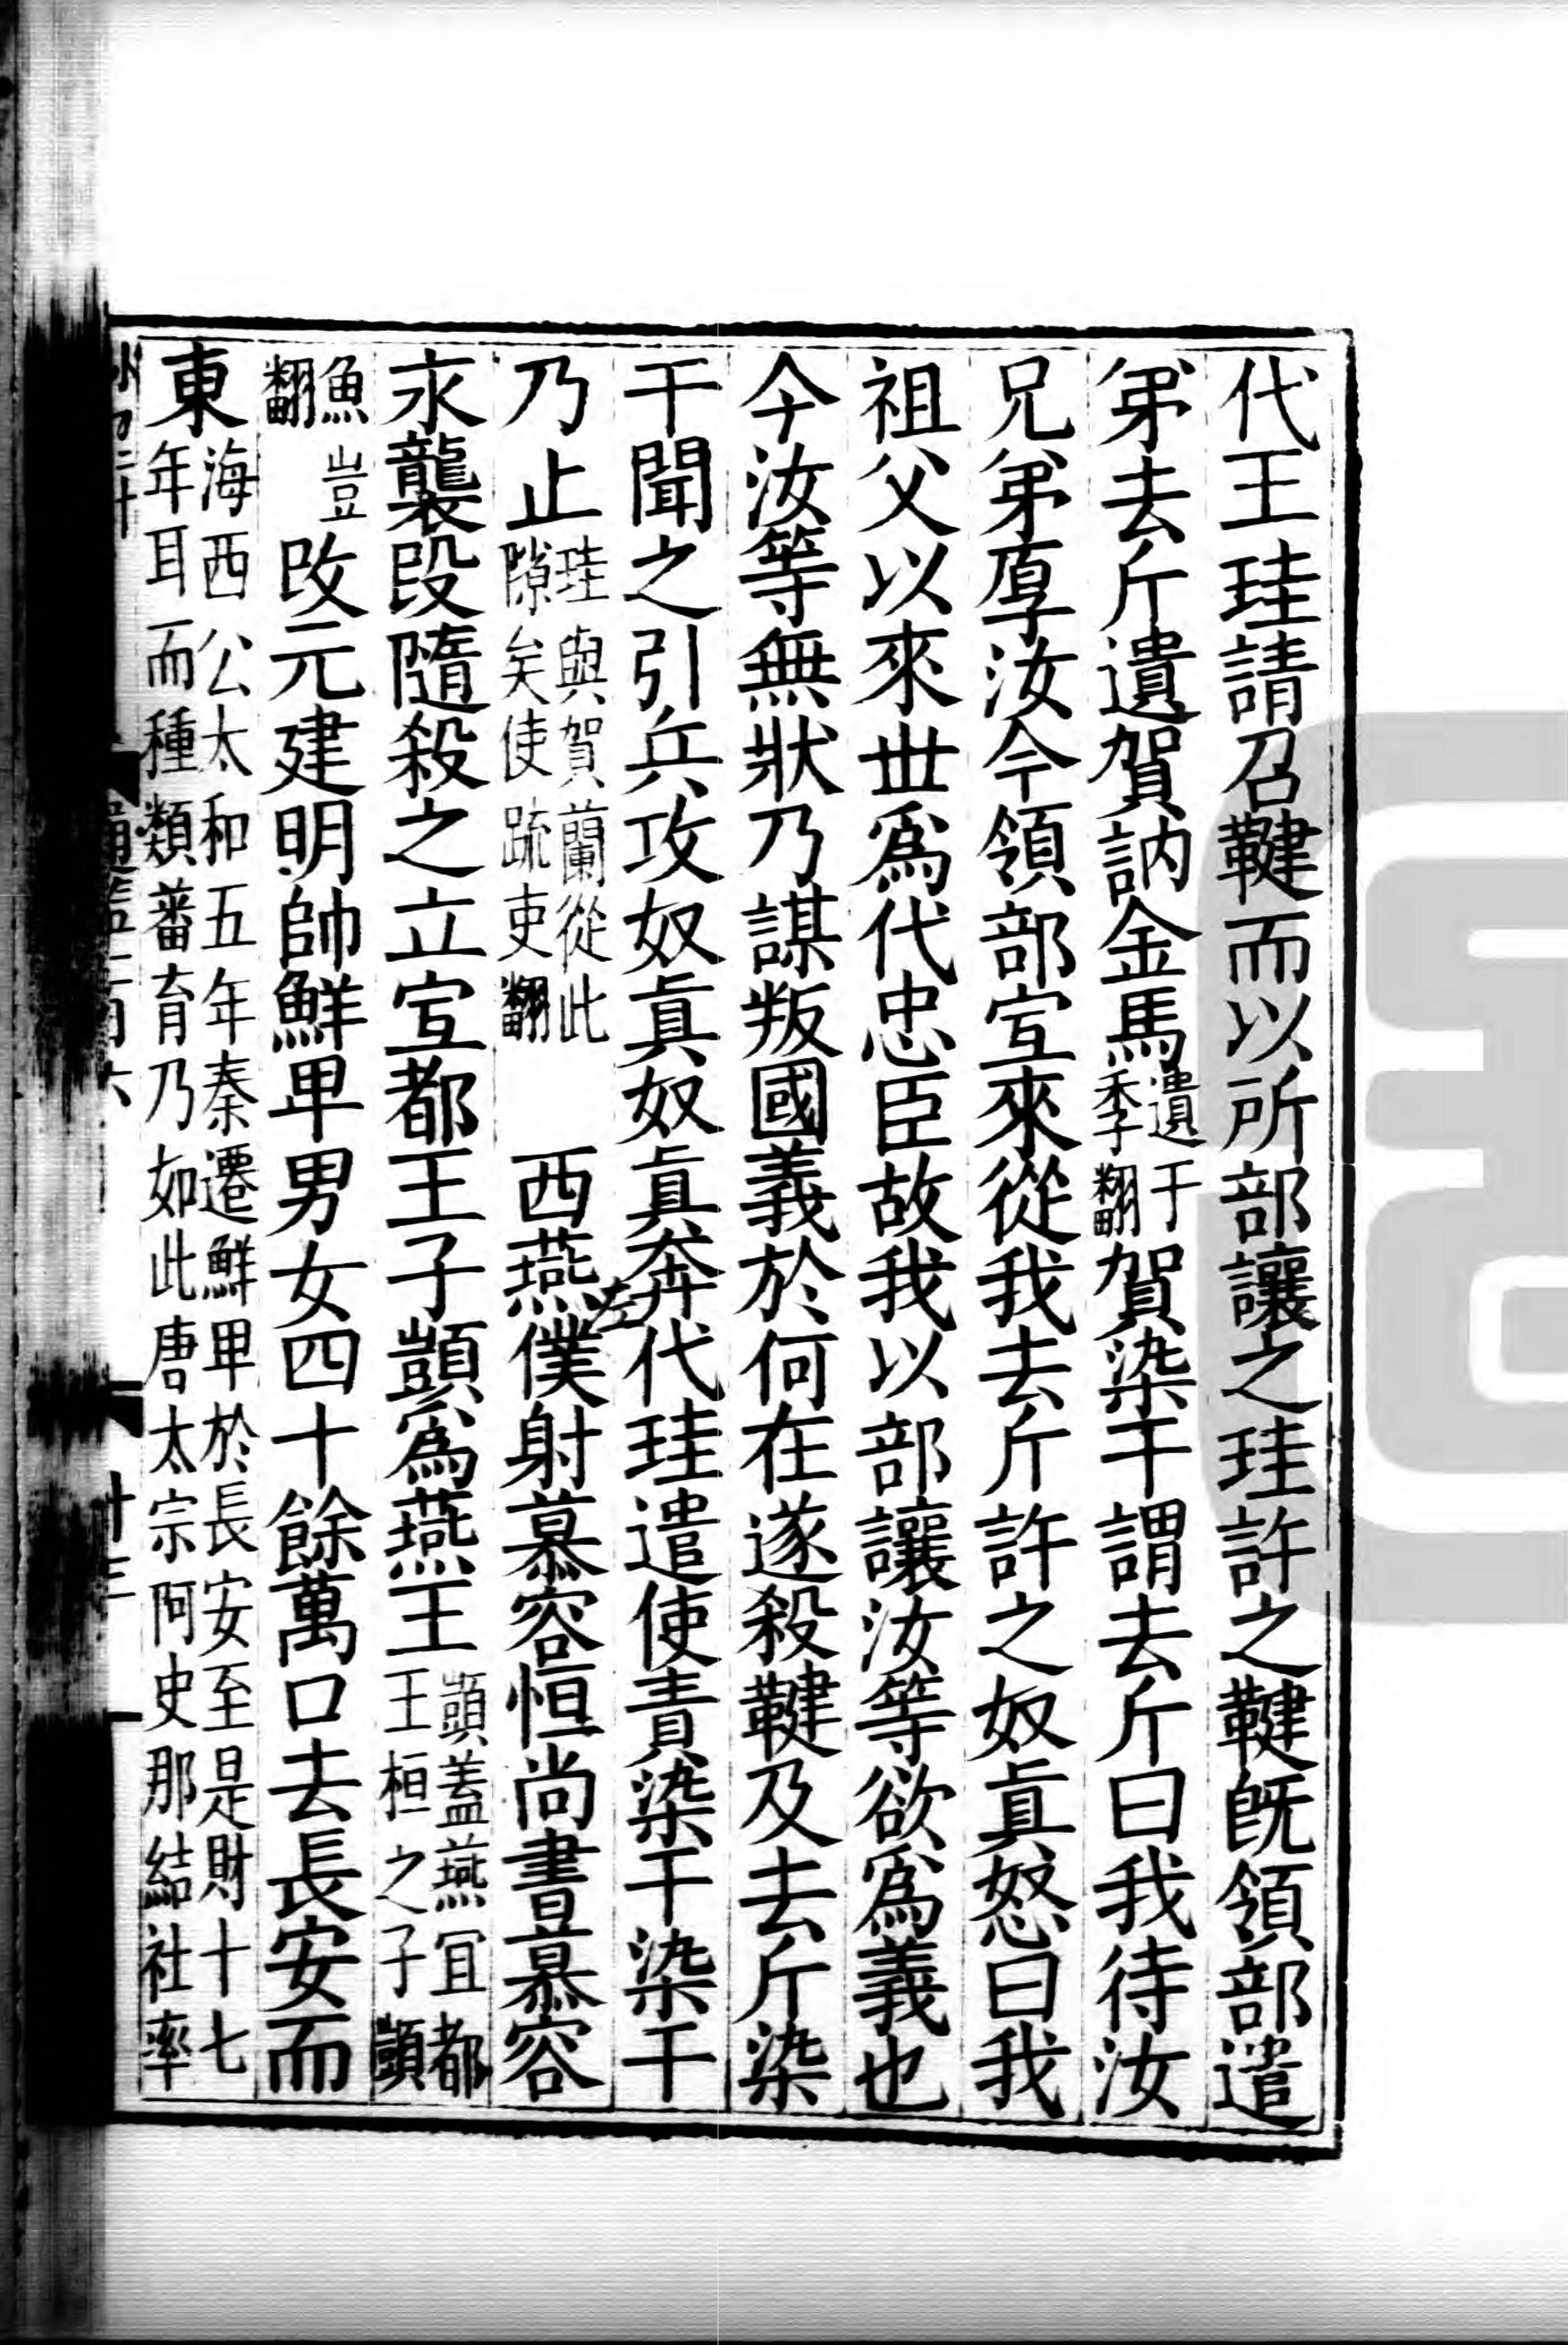 代王珪請召鞬而以所部讓之珪許之鞬既領部遣
弟去斤遺賀訥金馬遺于季翻賀染干謂去斤曰我待汝
兄弟厚汝今領部宜來從我去斤許之奴眞怒曰我
祖父以來世爲代忠臣故我以部讓汝等欲爲義也
今汝等無狀乃謀叛國義於何在遂殺鞬及去斤染
干聞之引兵攻奴眞奴眞奔代珪遣使責染干染干
乃止珪與賀蘭從此隙矣使疏吏翻 西燕左僕射慕容恒尚書慕容
永襲段隨殺之立宜都王子顗爲燕王顗蓋燕宜都王桓之子顗
魚豈翻改元建明帥鮮卑男女四十餘萬口去長安而
東海西公太和五年秦遷鮮卑於長安至是財十七年耳而種類蕃育乃如此唐太宗阿史那結社率